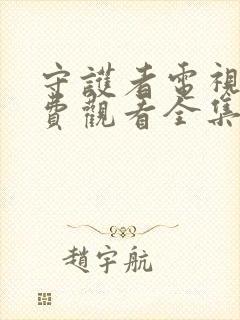 守護者電視
費觀看全集
趙宇航